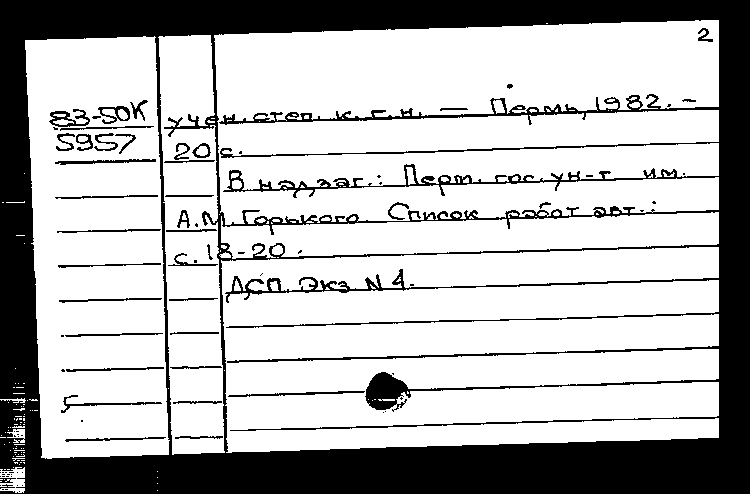 2
83-50К учен. степ. к. г. н. — Пермь, 1982. -
5957 20 с.
В надзаг.: Перм. гос. ун-т им.
А.М. Горького. Список работ авт.:
с. 18-20.
ДСП. Экз N 4.